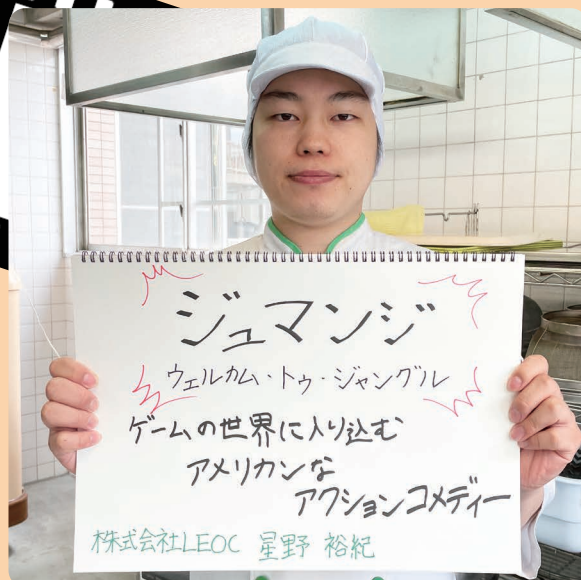 ジュマンジ
ウェルカム・トゥ・ジャングル
ゲームの世界に入り込む
アメリカンな
アクションコメディー
株式会社LEOC 星野 裕紀